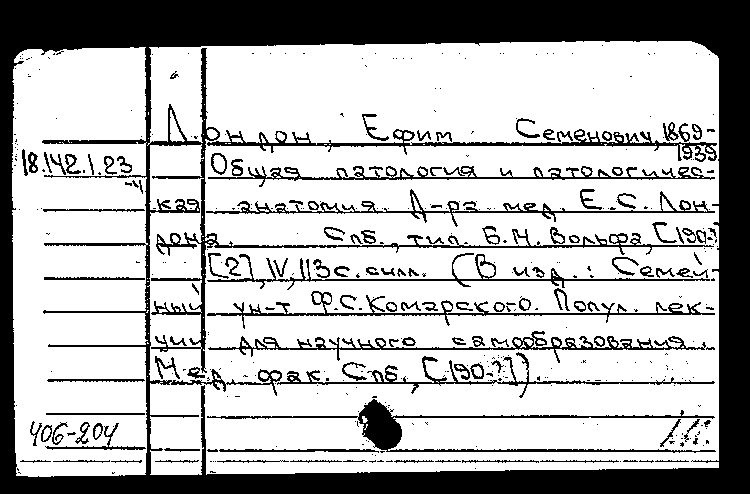 Лондон, Ефим Семенович, 1869-
1939
18.142.1.23
-4
Общая патология и патологичес-
кая анатомия. Д-ра мед. Е.С. Лон-
дона. Спб., тип. Б.М. Вольфа, [190-?]
[2], IV, 113 с. с илл. (В изд.: Семей-
ный ун-т Ф.С. Комарского. Попул. лек-
ции для научного самообразования.
Мед. фак. Спб., [190-?]).
406-204